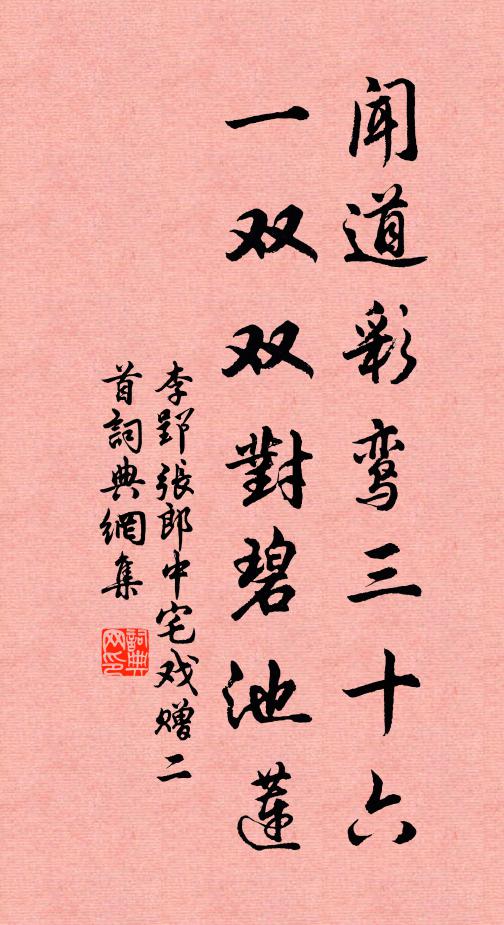 闻道彩鸾三十六
一双双對碧池蓮
李郢張郎中宅戏赠二
首詞典網集
詞典
网印